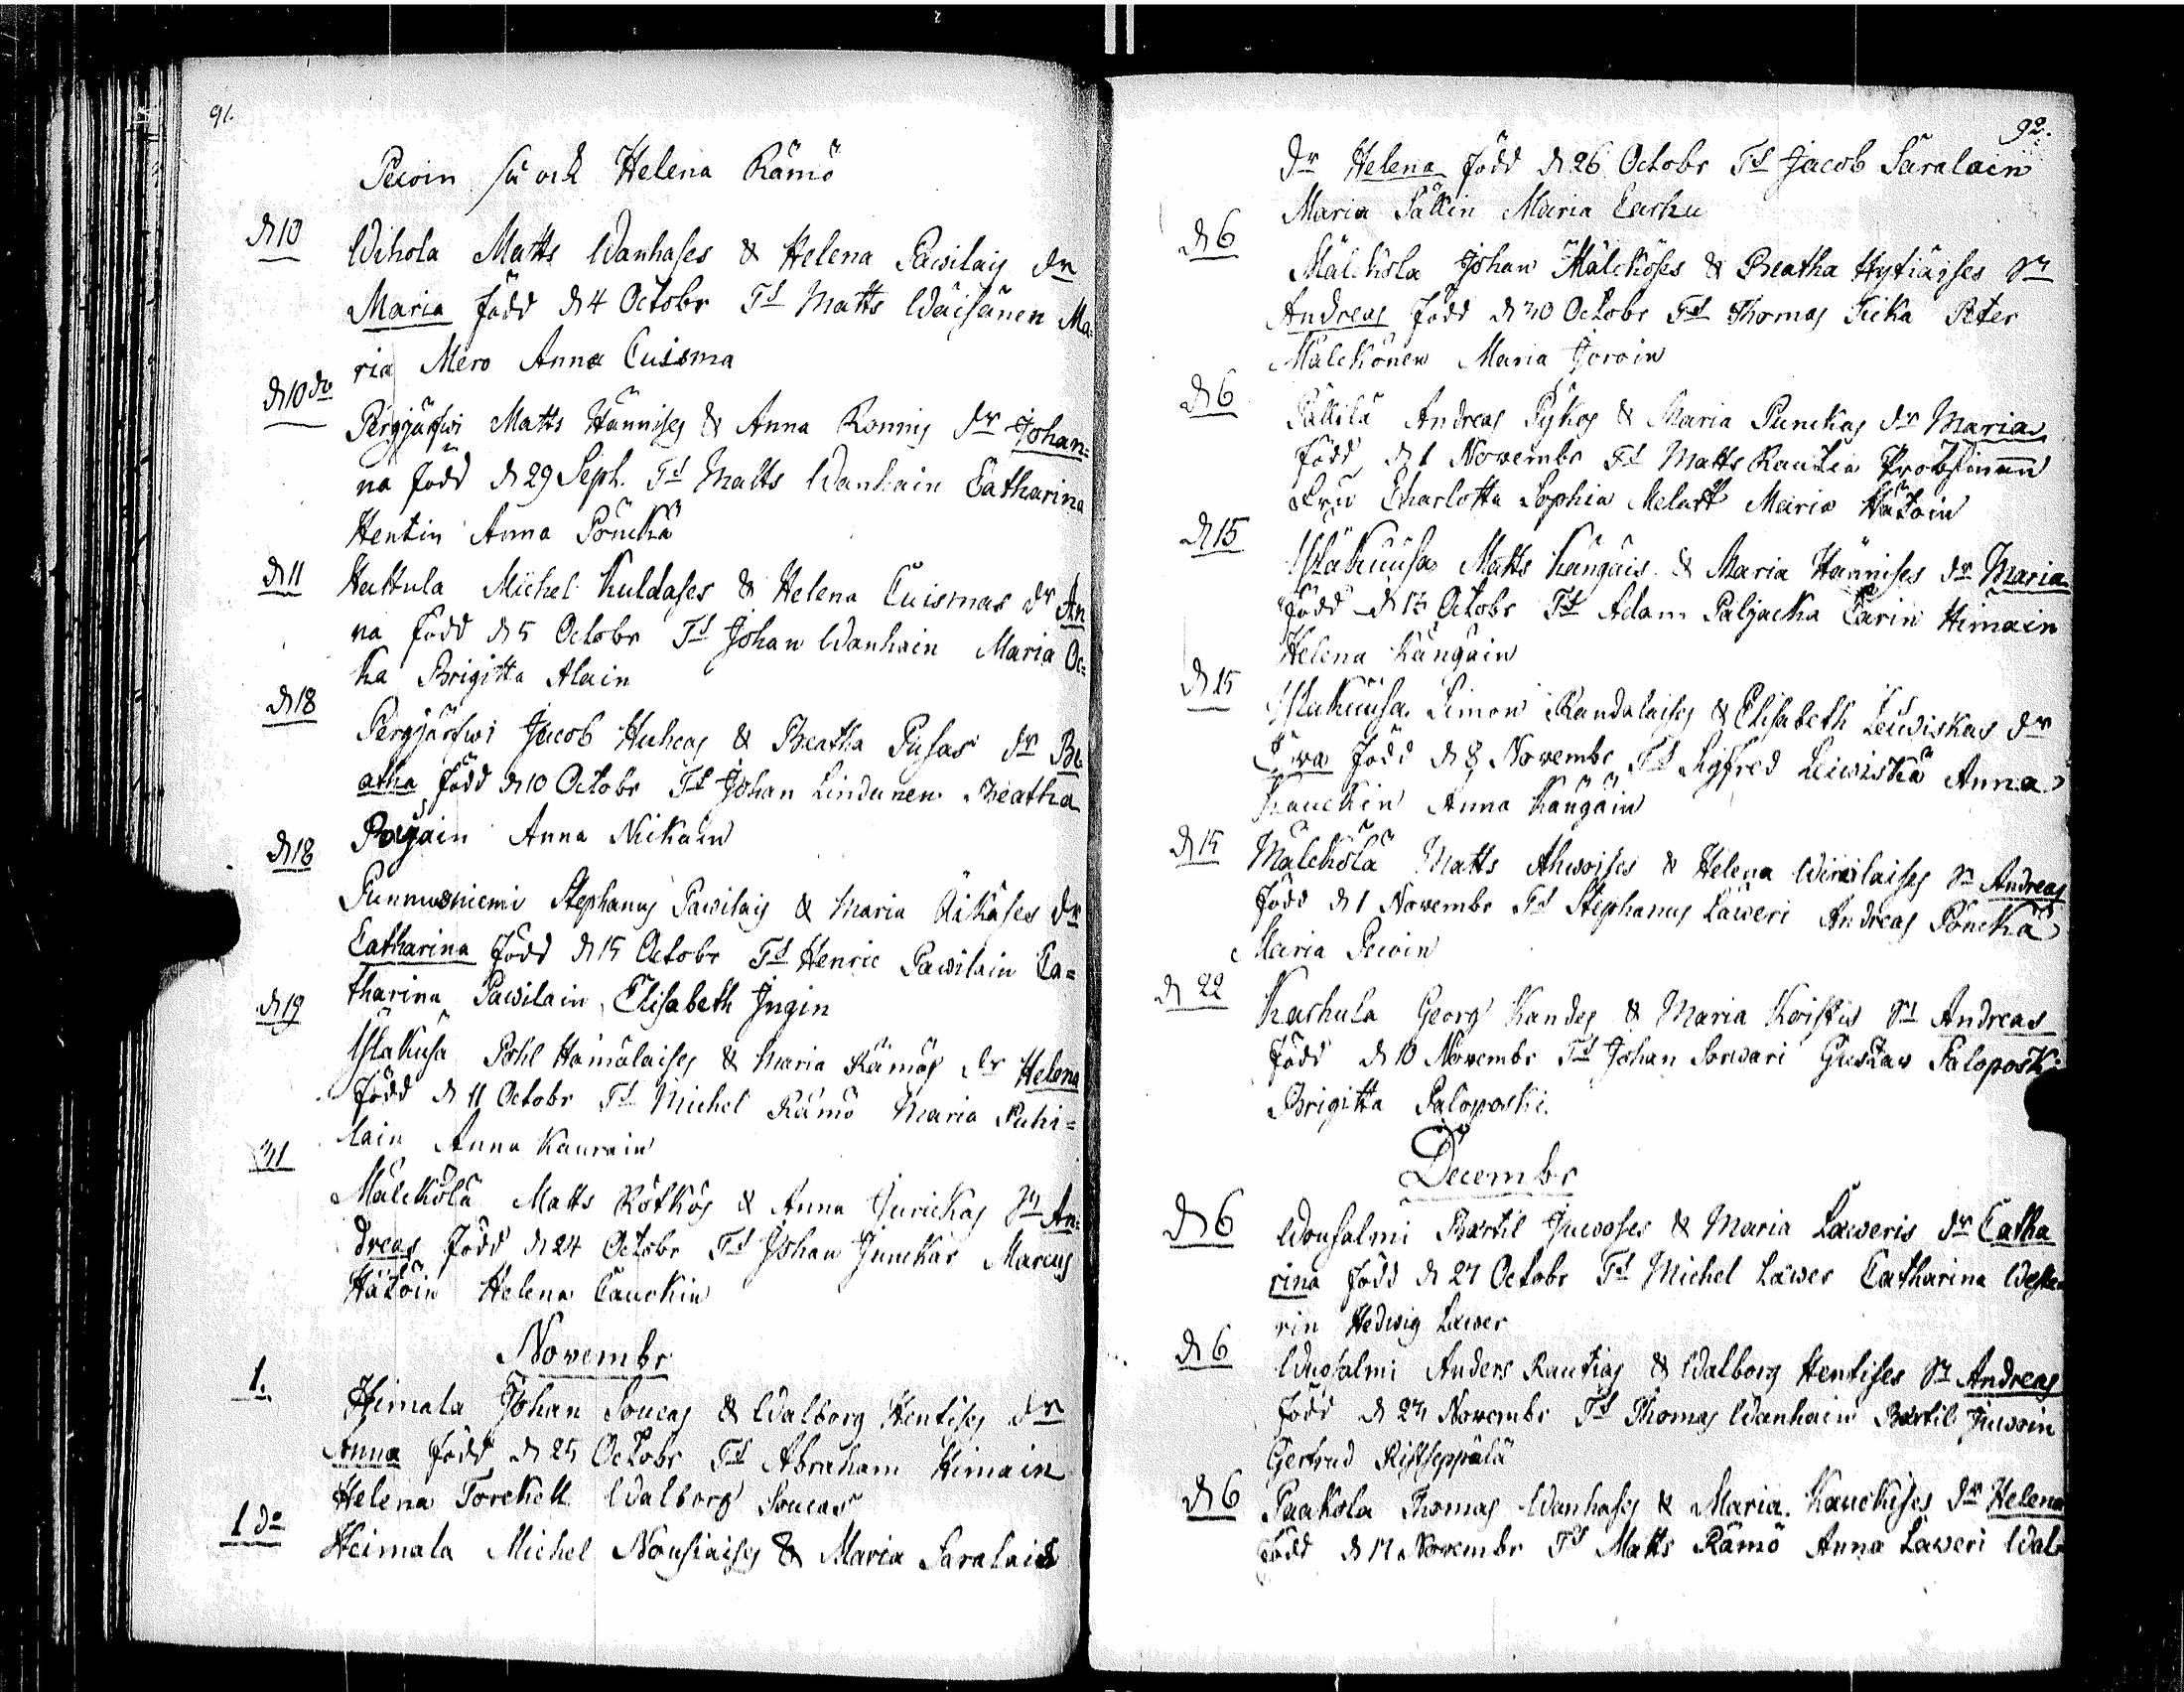 91.
Pewoin  och Helena Rämö
d 10
Wihola Matts Wanhases & Helena Pawilais dr
Maria född d 4 Octobr Ts Matts Wäisänen Ma-
ria Mero Anna Cuisma
d 10 do
Pergjärfwi Matts Hännises & Anna Ronnis dr Johan=
na född d 29 Seph. Ts Matts Wanhain Catharina
Hentin Anna Pönckä
d 11
Hattula Michel Kuldases & Helena Cuismas dr An
na född d 5 Octobr Ts Johan Wanhain Maria Oc=
ka Brigitta Alain
d 18
Pergjärfwi Jacob Huhcas & Beatha Pusas dr Be
atha född d 10 Octobr Ts Johan Lindunen Beatha
Poyjain Anna Nickain
d 18
Punnusniemi Stephanus Pawilais & Maria Räikäses dr
Catharina född d 15 Octobr Ts Henric Pawilain Ca=
tharina Pawilain Elisabeth Ingin
d 19
Yläkusä Pohl Hämäläises & Maria Rämös dr Helena
född d 11 Octobr Ts Michel Rämö Maria Puhi=
lain Anna Kaurain
31
Mälckölä Matts Rötkös & Anna Jurickas Sn An=
dreas född d 24 Octobr Ts Johan Junckar Marcus
Hätöin Helena Cauckin
Novembr
1.
Heimala Johan Soucas & Walborg Hentises dr
Anna född d 25 Octobr Ts Abraham Himain
Helena Torckell Walborg Soucas
1 do
Heimala Michel Nousiaises & Maria Saralais
92.
dr Helena född d 26 Octobr Ts Jacob Saralain
Maria Pällin Maria Carhu
d 6
Mälckölä Johan Mälcköses & Beatha Hytiäises Sn
Andreas född d 30 Octobr Ts Thomas Ticka Peter
Mälckönen Maria Joroin
d 6
Pällilä Andreas Pykös & Maria Punckas dr Maria
född d 1 Novembr Ts Matts Rautia Probstinnan
Fru Charlotta Sophia Melart Maria Hätöin
d 15
Yläkuusa Matts Kängäis & Maria Hännises dr Maria
född d 15 Octobr Ts Adam Paljacka Carin Himain
Helena Kängäin
d 15
Yläkuusa Simon Randalaises & Elisabeth Leiwiskäs dr
Ewa född d 8 Novembr Ts Sigfred Leiwiskä Anna
Kauckin Anna Kängäin
d 15
Mälckölä Matts Ahwoises & Helena Wirolaises Sn Andreas
född d 1 Novembr Ts Stephanus Läweri Andreas Pönckä
Maria Pewoin
d 22
Karhula Georg Kandes & Maria Koistis Sn Andreas
född d 10 Novembr Ts Johan Sorwari Gustav Paloposki
Brigitta Paloposki.
Decembr
d 6
Wousalmi Bertil Juwoses & Maria Läweris dr Catha
rina född d 27 Octobr Ts Michel Läwer Catharina Weste-
rin Hedwig Läwer
d 6
Wuosalmi Anders Rautias & Walborg Hentises Sn Andreas
född d 24 Novembr Ts Thomas Wanhain Bertil Juwoin
Gertrud Ristseppälä
d 6
Paakola Thomas Wanhases & Maria Kauckises dr Helena
född d 17 Novembr Ts Matts Rämö Anna Läweri Wal-